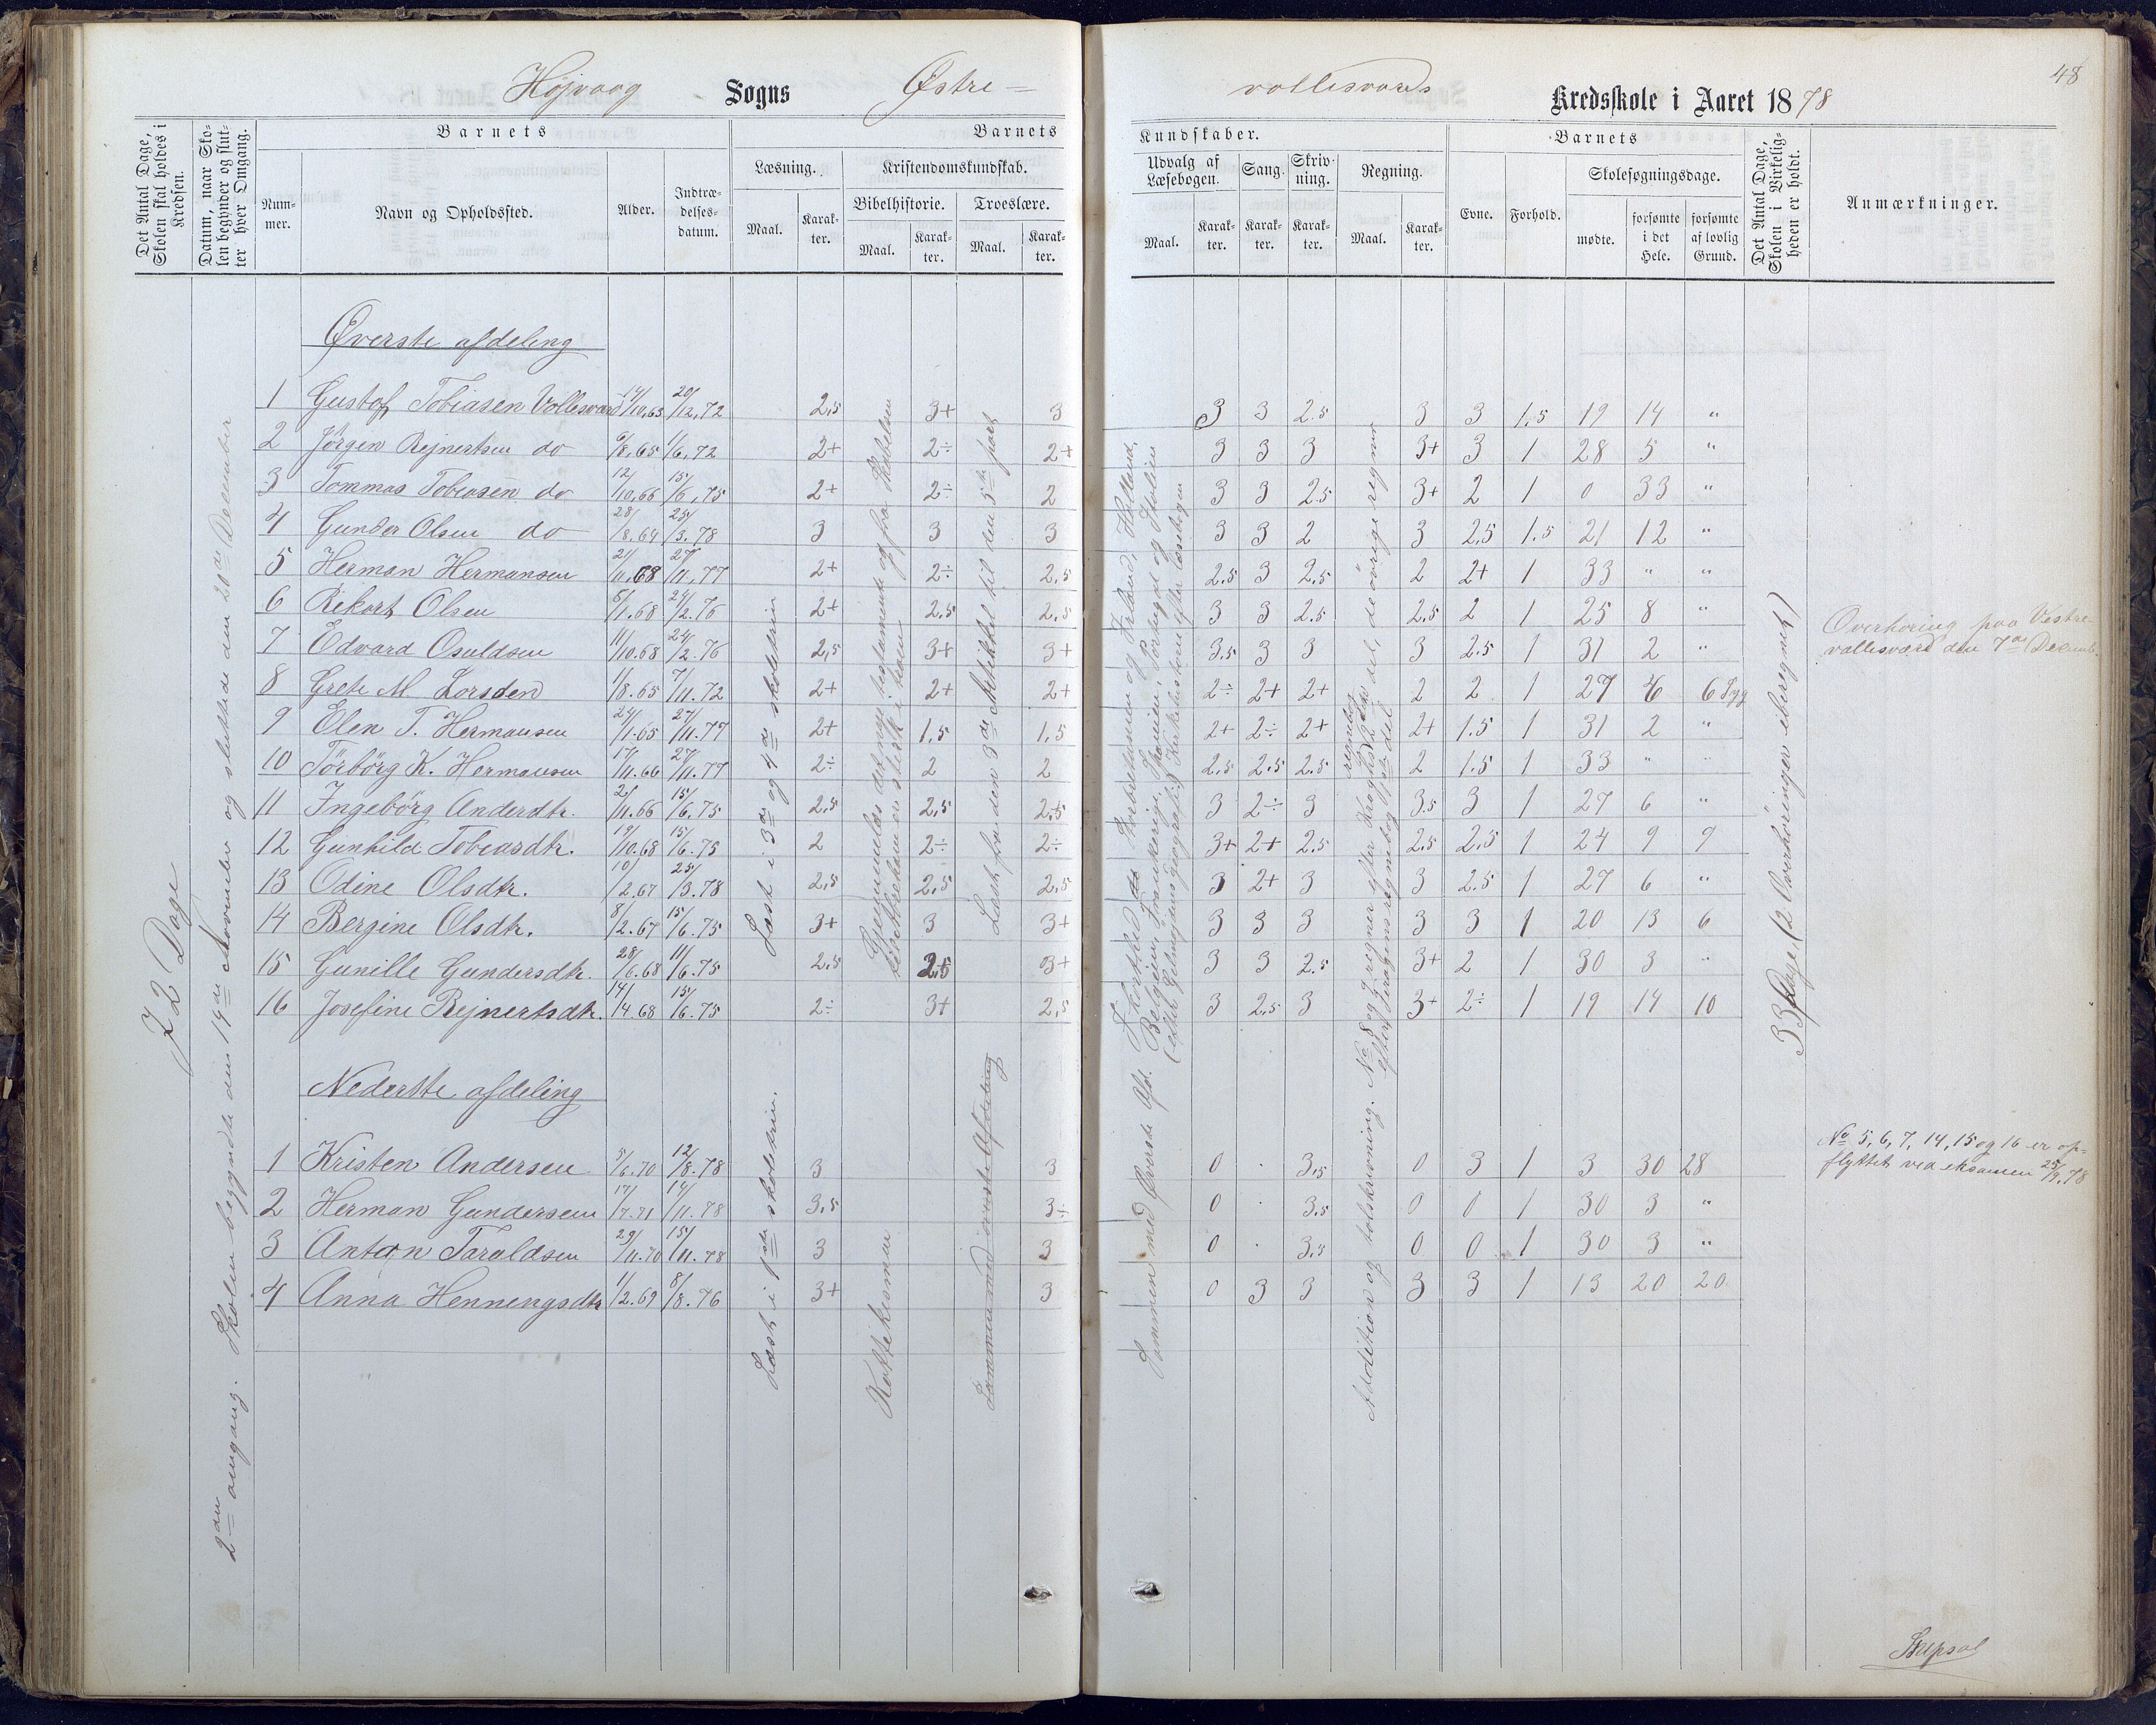 48
Højvaag Sogns Østre-
vollesværds Kredsskole i Aaret 1878
Det Antal Dage, Skolen skal holdes i Kredsen.
Datum, naar Skolen begynder og slutter hver Omgang.
Barnets
Nummer.
Navn og Opholdssted.
Alder.
Indtrædelsesdatum.
Barnets
Læsning.
Maal.
Karakter.
Kristendomskundskab.
Bibelhistorie.
Maal.
Karakter.
Troeslære.
Maal.
Karakter.
Kundskaber.
Udvalg af Læsebogen.
Maal.
Karakter.
Sang.
Karakter.
Skrivning.
Karakter.
Regning.
Maal.
Karakter.
Barnets
Evne.
Forhold.
Skolesøgningsdage.
mødte.
forsømte i det Hele.
forsømte af lovlig Grund.
Det Antal Dage, Skolen i Virkeligheden er holdt.
Anmærkninger.
72 Dage
2den omgang. Skolen begyndte den 14de November og sluttede den 20de December
Øverste afdeling
1 Gustof Tobiasen Vollesværd 14/10.63 20/12.72 2,5 3+ 3 3 3 2.5 3 3 1,5 19 14 "
2 Jörgen Rejnertsen do 6/8.65 1/6.72 2+ 2÷ 2+ 3 3 3 3+ 3 1 28 5 "
3 Tommas Tobiasen do 12/10.66 15/6.75 2+ 2÷ 2 3 3 2.5 3+ 2 1 0 33 "
4 Gunder Olsen do 28/8.64 25/3.78 3 3 3 3 3 2 3 2,5 1.5 21 12 "
5 Herman Hermansen 21/11.68 27/11.77 2+ 2÷ 2,5 2.5 3 2,5 2 2+ 1 33 " "
6 Rikart Olsen 5/1.68 24/2.76 2+ 2,5 2,5 3 3 2.5 2,5 2 1 25 8 "
7 Edvard Osuldsen 11/10.68 24/2.76 2,5 3+ 3+ 3.5 3 3 3 2.5 1 31 2 "
8 Grete M Lorsden 1/8.65 7/11.72 2+ 2+ 2+ 2÷ 2+ 2+ 2 2 1 27 6 6 Syg
9 Elen T. Hermansen 24/1.65 27/11.77 2+ 1,5 1,5 2+ 2÷ 2+ 2+ 1.5 1 31 2 "
10 Törbörg K. Hermansen 17/11.66 27/11.77 2÷ 2 2 2,5 2,5 2,5 2 1.5 1 33 " "
11 Ingebörg Andersdtr. 2/11.66 15/6.75 2,5 2,5 2,5 3 2÷ 3 3.5 3 1 27 6 "
12 Gunhild Tobiasdtr. 19/10.68 15/6.75 2 2÷ 2÷ 3+ 2+ 2,5 2,5 2,5 1 24 9 9
13 Odine Olsdtr. 10/2.67 25/3.78 2,5 2,5 2,5 3 2+ 3 3 2.5 1 27 6 "
14 Bergine Olsdtr. 8/2.67 15/6.75 3+ 3 3+ 3 3 3 3 3 1 20 13 6
15 Gunille Gundersdtr. 28/6.68 11/6.75 2,5 2,5 3+ 3 3 2.5 3+ 2 1 30 3 "
16 Josefine Rejnertsdtr. 14/4.68 15/6.75 2÷ 3+ 2,5 3 2,5 3 3+ 2÷ 1 19 14 10
Læst i 3de og 4de skoletrin
Læst fra den 3de Artikkel til den 5te part
33 Dage (2 Overhøringer iberegnet)
Overhøring paa Vestre-
vollesværd den 7de Decemb.
Nederste afdeling
1 Kristen Andersen 5/6.70 12/8.78 3 3 0 . 3,5 0 3 1 3 30 28
2 Herman Gundersen 17/7.71 14/11.78 3,5 3÷ 0 . 3,5 0 0 1 30 3 "
3 Antan Taraldsen 29/11.70 15/11.78 3 3 0 . 3,5 0 0 1 30 3 "
4 Anna Henningsdtr 1/2.69 8/8.76 3+ 3 0 3 3 3 3 1 13 20 20
Læst i 1ste skoletrin.
Sammen med øverste Afdeling
Sammen med Øverste Afd.
Addition og talskrivning.
No 5, 6, 7, 14, 15 og 16 er op-
flyttet ved eksamen 25/9.78